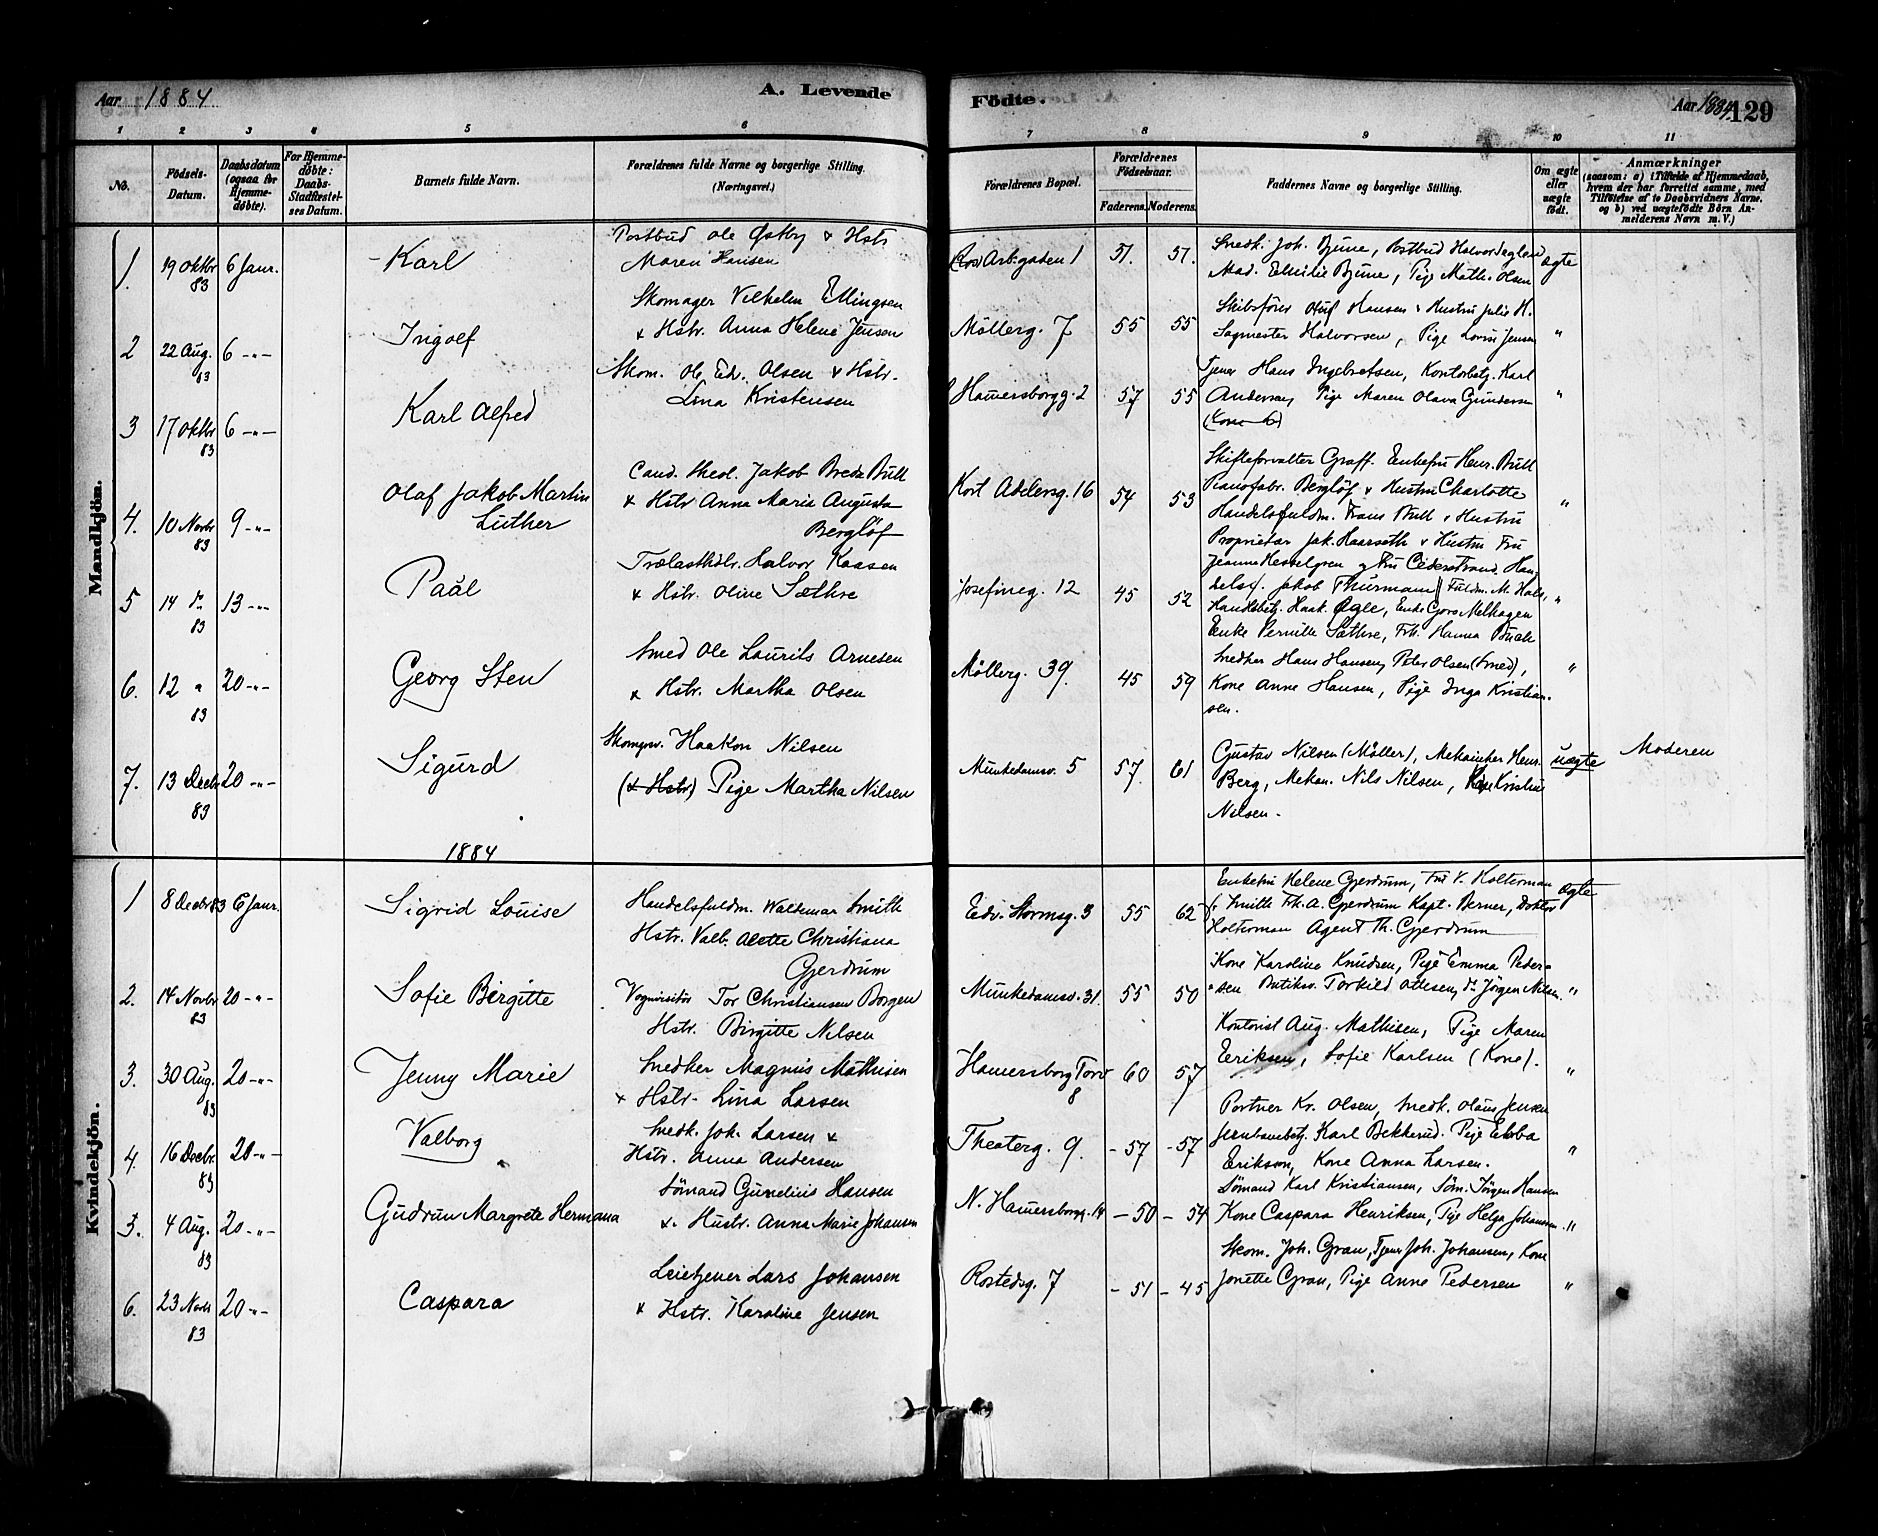 Aar 1884
A. Levende
Födte.
Aar 1884.
129
1 2 3 4 5 6 7 8 9 10 11
No.
Födsels-Datum.
Daabsdatum (ogsaa for Hjemmedöbte).
For Hjemmedöbte: Daabs-Stadfæstelses Datum.
Barnets fulde Navn.
Forældrenes fulde Navne og borgerlige Stilling. (Næringsvei.)
Forældrenes Bopæl.
Forældrenes Födselsaar.
Faderens. Moderens.
Faddernes Navne og borgerlige Stilling.
Om ægte eller uægte födt.
Anmærkninger
(saasom: a) i Tilfælde af Hjemmedaab, hvem der har forrettet samme, med Tilföielse af to Daabsvidners Navne, og b) ved uægtefödte Börn Anmelderens Navn m. V.)
Mandkjön.
1. 19 Oktbr 83 6 Janr. Karl
Postbud Ole Østby & Hstr
Maren Hansen
Arb.gaden 1 51. 57.
Snedk. Joh. Bjune, Postbud Halvor
Mad. Emilie Bjune, Pige Math. Olsen
ægte
2 22 Aug. 83 6 -"- Ingolf
Skomager Vilhelm Ellingsen
& Hstr. Anna Helene Jensen
Möllerg. 7 55 55
Skibsförer Hansen & Hustru Julie H.
Sagmester Halvorsen, Pige Lovise Jensen
"
3 17 Oktbr 83 6 -"- Karl Alfred
Skom. Ole Edv. Olsen & Hstr.
Lina Kristensen
Hamersborgg. 2 57 55
Tjener Hans Ingebretsen, Kontorbetj. Karl
Andersen, Pige Maren Olava Gundersen
"
4. 10 Novbr 83 9 -"- Olaf Jakob Martin
Luther
Cand. theol. Jakob Breda Bull
& Hstr Anna Maria Augusta
Berglöf
Kort Adelersg. 16 54 53
Skifteforvalter Graff. Enkefru Henr. Bull
Pianofabr. Berglöf & Hustru Charlotte
Handelsfuldm. Frans Bull & Hustru
Proprietær Jak. Haarseth & Hustru Fru
Jeanne Hesselgren og Fru Cederstrand.
"
5 14 d. 83 13 -"- Paål
Trælasthdlr. Halvor Kaasen
& Hstr. Oline Sæthre
Josefineg. 12 45 52
Handelsf. Jakob Thurmann Fuldm. M. Hals,
Handelsbetj. Haak. Ogle, Enke Gjoro Melhagen
Enke Pernille Sæthre, Frk. Hanna Buch
"
6. 12 " 83 20 -"- Georg Sten
Smed Ole Laurits Arnesen
& Hstr. Martha Olsen
Möllerg. 39. 45 59
Snedker Hans Hansen, Peter Olsen (Smed),
Kone Anne Hansen, Pige Inga Kristian-
sen.
"
7. 13 Decbr 83 20 -"- Sigurd
Skomgsv. Haakon Nilsen
(& Hstr) Pige Martha Nilsen
Munkedamsv. 5 57 61
Gustav Nilsen (Möller), Mekaniker Henr.
Berg, Mekan. Nils Nilsen, Kristine
Nilsen.
uægte
Moderen
1884
Kvindekjön.
1 8 Decbr 83 6 Janr. Sigrid Louise
Handelsfuldm. Waldemar Smith
Hstr. Valb. Alette Christiana
Gjerdrum
Edv. Stormsg. 3 55 62
Enkefru Helene Gjerdrum, Frk V. Holterman
Smith Frk. A. Gjerdrum Kapt. Berner, Doktor
Holterman Agent Th. Gjerdrum
ægte
2. 14 Novbr 83 20 -"- Sofie Birgitte
Vognvisitör Tor Christiansen Borgen
Hstr. Birgitte Nilsen
Munkedamsv. 31. 55 50
Kone Karoline Knudsen, Pige Emma Peder-
sen Butiksv. Torkild Ottesen, do Jörgen Nilsen.
"
3. 30 Aug. 83 20 -"- Jenny Marie
Snedker Magnus Mathisen
& Hstr. Lina Larsen
Hamersborg Torv 8 60 57
Kontorist Aug. Mathisen, Pige Maren
Eriksen, Sofie Karlsen (Kone).
"
4. 16 Decbr. 83 20 -"- Valborg
Snedk. Joh. Larsen &
Hstr. Anna Andersen
Theaterg. 9. - 57 - 57
Portner Kr. Olsen, Snedk. Olaus Jensen
Jernbanebetj. Karl Bekkerud. Pige Ebba
Erikson, Kone Anna Larsen.
"
5. 4 Aug. 83 20 -"- Gudrun Margrete Hermana
Sömand Gunelius Hansen
& Hustr. Anna Marie Johansen
N. Hamersborgg. 14 - 50 - 54
Sömand Karl Kristiansen, Söm. Jörgen Hansen
Kone Caspara Henriksen, Pige Helga Johansen.
"
6. 23 Novbr 83 20 -"- Caspara
Leietjener Lars Johansen
& Hstr. Karoline Jensen
Rostedsg. 7 - 51 - 45
Skom. Joh. Gran, Tjener Joh. Johansen, Kone
Jonette Gran, Pige Anne Pedersen
"